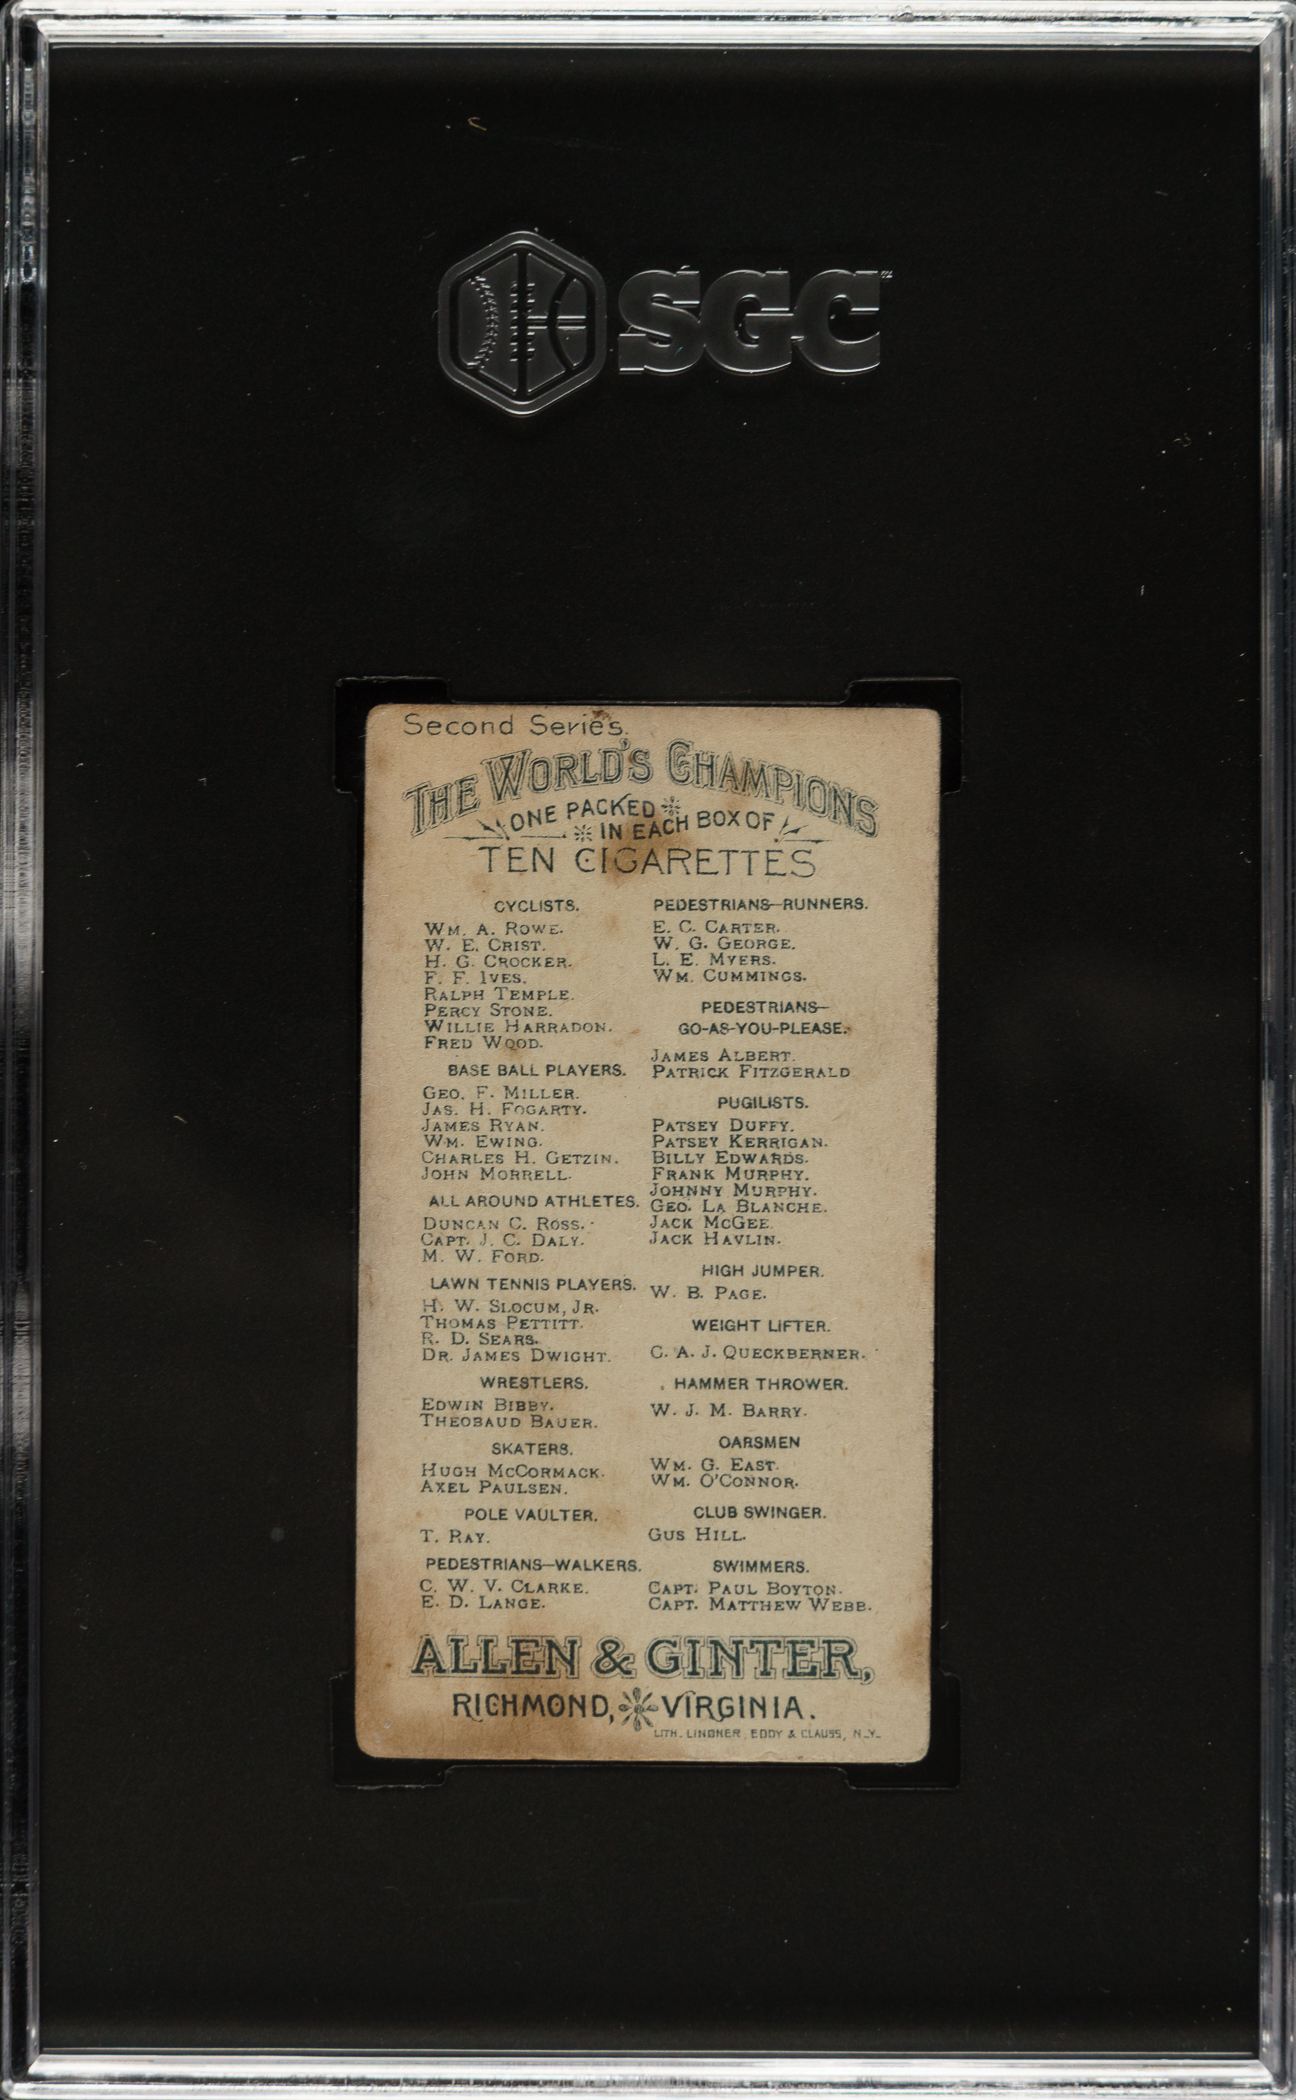 SGC
Second Series.
THE WORLD'S CHAMPIONS
ONE PACKED
IN EACH BOX OF
TEN CIGARETTES
CYCLISTS.
WM. A. ROWE.
W. E. CRIST.
H. G. CROCKER.
F. F. IVES.
RALPH TEMPLE.
PERCY STONE.
WILLIE HARRADON.
FRED WOOD.
BASE BALL PLAYERS.
GEO. F. MILLER.
JAS. H. FOGARTY.
JAMES RYAN.
WM. EWING.
CHARLES H. GETZIN.
JOHN MORRELL.
ALL AROUND ATHLETES.
DUNCAN C. ROSS.
CAPT. J. C. DALY.
M. W. FORD.
LAWN TENNIS PLAYERS.
H. W. SLOCUM, JR.
THOMAS PETTITT.
R. D. SEARS.
DR. JAMES DWIGHT.
WRESTLERS.
EDWIN BIBBY.
THEOBAUD BAUER.
SKATERS.
HUGH MCCORMACK.
AXEL PAULSEN.
POLE VAULTER.
T. RAY.
PEDESTRIANS—WALKERS.
C. W. V. CLARKE.
E. D. LANGE.
PEDESTRIANS—RUNNERS.
E. C. CARTER.
W. G. GEORGE.
L. E. MYERS.
WM. CUMMINGS.
PEDESTRIANS—
GO-AS-YOU-PLEASE.
JAMES ALBERT.
PATRICK FITZGERALD
PUGILISTS.
PATSEY DUFFY.
PATSEY KERRIGAN.
BILLY EDWARDS.
FRANK MURPHY.
JOHNNY MURPHY.
GEO. LA BLANCHE.
JACK MCGEE.
JACK HAVLIN.
HIGH JUMPER.
W. B. PAGE.
WEIGHT LIFTER.
C. A. J. QUECKBERNER.
HAMMER THROWER.
W. J. M. BARRY.
OARSMEN
WM. G. EAST.
WM. O'CONNOR.
CLUB SWINGER.
GUS HILL.
SWIMMERS.
CAPT. PAUL BOYTON.
CAPT. MATTHEW WEBB.
ALLEN & GINTER,
RICHMOND, VIRGINIA.
LITH. LINDNER, EDDY & CLAUSS, N.Y.